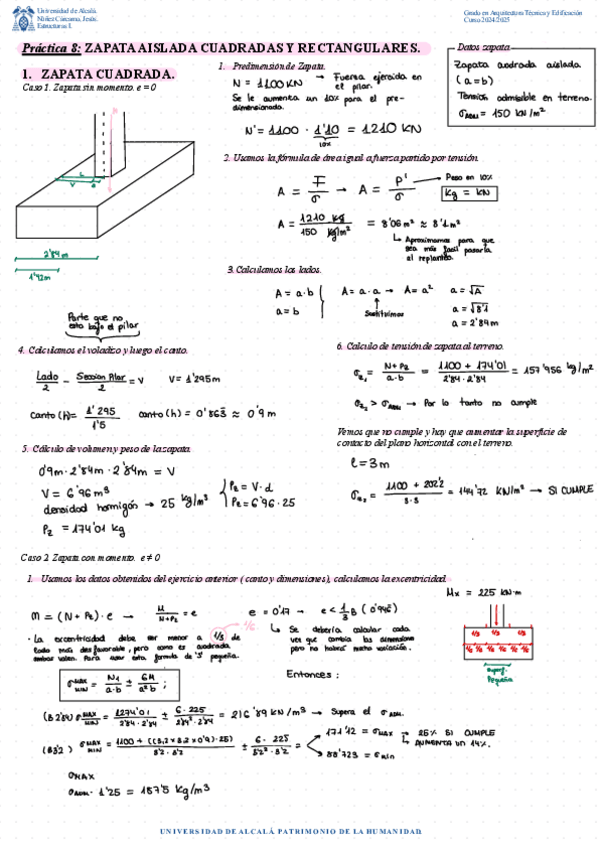 Universidad de Alcalá.
Núñez Cárcamo, Jesús.
Estructuras I.
Grado en Arquitectura Técnica y Edificación
Curso 2024/2025
Práctica 8: ZAPATA AISLADA CUADRADAS Y RECTANGULARES.
1. ZAPATA CUADRADA.
Caso 1. Zapata sin momento. e = 0
Datos zapata
Zapata cuadrada aislada
(a=b)
Tensión admisible en terreno.
σADM = 150 kN/m²
1. Predimensión de Zapata.
N = 1100 KN → Fuerza ejercida en el pilar.
Se le aumenta un 10% para el predimensionado.
N' = 1100 · 1'10 = 1210 KN
10%
2. Usamos la fórmula de área igual a fuerza partido por tensión.
A = F/σ → A = P'/σ → Peso en 10%
Kg = KN
A = 1210 kg / 150 kg/m² = 8'06 m² ≈ 8'1 m²
↳ Aproximamos para que sea más facil pasarlo al replanteo.
2'84 m
1'42 m
3. Calculamos los lados.
A = a·b
a = b
A = a·a → A = a²
Sustituimos
a = √A
a = √8'1
a = 2'84 m
Parte que no esta bajo el pilar
4. Calculamos el voladizo y luego el canto.
Lado/2 - Seccion Pilar/2 = V
V = 1'295 m
Canto (h) = 1'295/1'5
canto (h) = 0'863 ≈ 0'9 m
5. Cálculo de volumen y peso de la zapata.
0'9m · 2'84m · 2'84m = V
V = 6'96 m³
densidad hormigón → 25 kg/m³
Pz = V·d
Pz = 6'96 · 25
Pz = 174'01 kg
6. Calculo de tensión de zapata al terreno.
σz₁ = N+Pz / a·b = 1100 + 174'01 / 2'84 · 2'84 = 157'956 kg/m²
σz₂ > σADM → Por lo tanto no cumple
Vemos que no cumple y hay que aumentar la superficie de contacto del plano horizontal con el terreno.
l = 3m
σz₂ = 1100 + 202'2 / 3·3 = 144'72 KN/m² → SI CUMPLE
Caso 2. Zapata con momento. e ≠ 0
1. Usamos los datos obtenidos del ejercicio anterior (canto y dimensiones), calculamos la excentricidad.
m = (N + Pz) · e → M / N+Pz = e
e = 0'17 → e < 1/3 B (0'94 )
1/6
· La excentricidad debe ser menor a 1/3 de lado más desfavorable, pero como es cuadrada ambos valen. Para usar esta formula de "S" pequeña.
↳ Se debería calcular cada vez que cambias las dimensiones pero no habrá mucha variación.
Mx = 225 kN·m
1/3 1/3 1/3
1/6 1/6 1/6 1/6 1/6 1/6
superf. Pequeña
Entonces:
σ MAX MIN = N1 / a·b ± 6M / a² b ;
(B 2'84) σ MAX MIN = 1274'01 / 2'84 · 2'84 ± 6 · 225 / 2'84² · 2'84 = 216'89 KN/m³ → Supera el σADM.
(B 3'2) σ MAX MIN = 1100 + ((3,2 x 3,2 x 0'9) · 25) / 3'2 · 3'2 ± 6 · 225 / 3'2² · 3'2 =
171'12 = σMAX → 25% SI CUMPLE
→ AUMENTA UN 14%.
88'723 = σmin
σMAX
σADM · 1'25 = 187'5 kg/m³
UNIVERSIDAD DE ALCALÁ, PATRIMONIO DE LA HUMANIDAD.